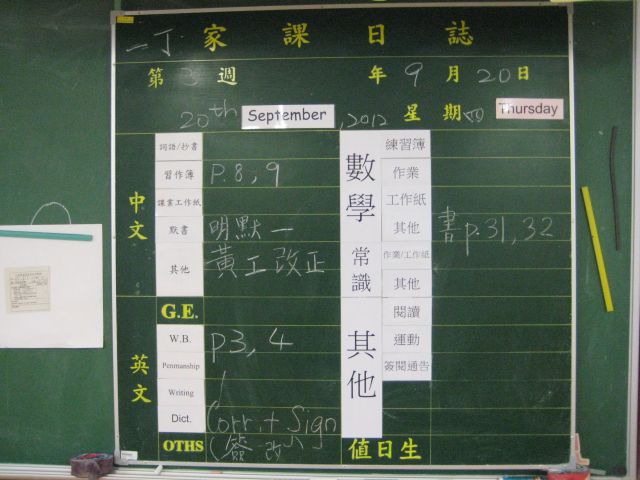 一丁 家課日誌
第3週 年9月20日
20th September, 2012 星期四 Thursday
中文
詞語/抄書
習作簿 P.8, 9
課業工作紙
默書 明默一
其他 黃工改正
英文
G.E.
W.B. p3, 4
Penmanship
Writing
Dict. Corr. + Sign
OTHS (簽 改)
數學
練習簿
作業
工作紙
其他 書p.31, 32
常識
作業/工作紙
其他
其他
閱讀
運動
簽閱通告
值日生